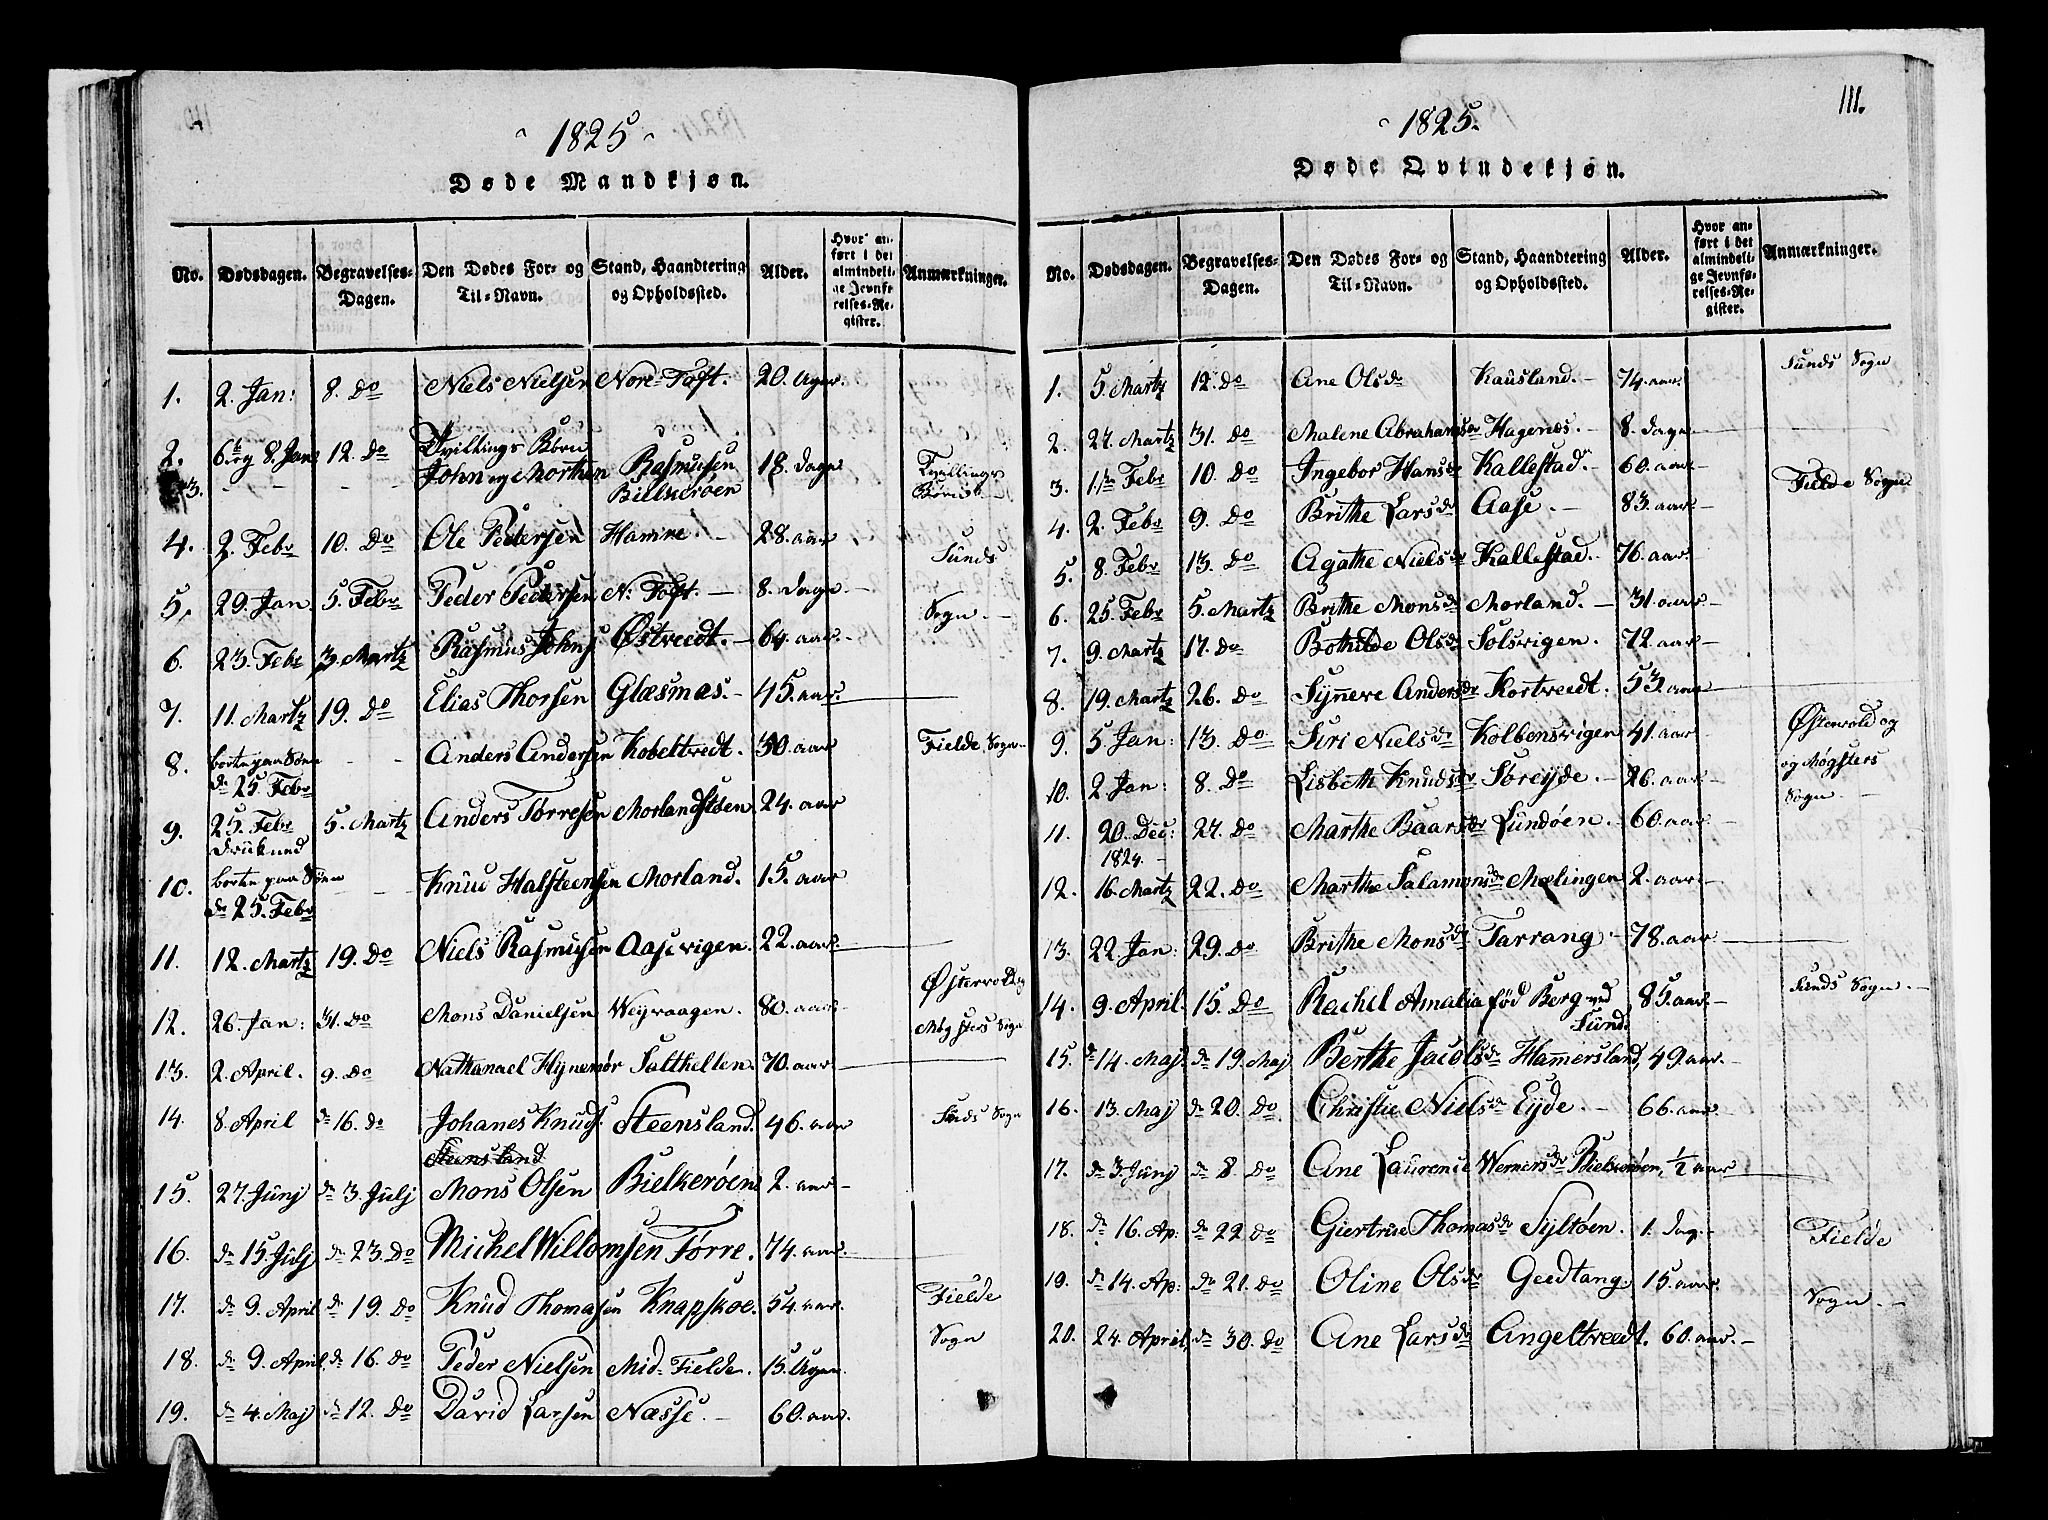 1825
Døde Mandkjøn.
No. Dødsdagen. Begravelses-Dagen. Den Dødes For- og Til-Navn. Stand, Haandtering og Opholdssted. Alder. Hvor anført i det almindelige Jevnførelses-Register. Anmærkninger.
1. 2. Jan: 8. Do Niels Nielsen Nore-Toft. 20. Uger.
2. 6te og 8. Jan 12. Do Tvillings Børn
3. John og Morthen Rasmusen Bielkerøen 18. Dage Tvillinge
4. 2. Febr 10. Do Ole Pedersen Hamre. 28. aar Sunds
5. 29. Jan. 5. Febr Peder Pedersen N: Toft. 8. Dage Sogn.
6. 23. Febr 3. Martz Rasmus Johns Østvedt. 64. aar
7. 11. Martz 19. Do Elias Thorsen Glæsnæs. 45. aar
8. borte paa Søen Anders Andersen Kobeltvedt. 30. aar Fielde Sogn
dn 25 Febr
9. 25. Febr 5. Martz Anders Torresen Morlandstøen 24. aar
10. borte paa Søen Knud Halsteensen Morland. 15. aar
dn 25. Febr
11. 12. Martz 19. Do Niels Rasmusen Aasevigen. 22. aar
12. 26. Jan: 31. Do Mons Danielsen Weyvaagen. 80. aar Østervold og Møgsters Sogn
13. 2. April. 9. Do Nathanael Hynemør Salthelten. 70. aar
14. 8. April dn 16. Do Johanes Knuds. Steensland. 46. aar Sunds Sogn
Steensland
15. 27. Junj dn 3. Julj Mons Olsen Bielkerøen 2. aar
16. dn 15. Julj dn 23. Do Michel Willomsen Tørre. 74. aar
17. dn 9. April dn 19. Do Knud Thomasen Knapskoe. 54. aar Fielde
18. dn 9. April dn 16. Do Peder Nielsen Mid-Fielde. 15. Ugen Sogn
19. dn 4. Maj dn 12. Do David Larsen Næsse. 60. aar.
111.
1825.
Døde Qvindekjøn.
No. Dødsdagen. Begravelses-Dagen. Den Dødes For- og Til-Navn. Stand, Haandtering og Opholdssted. Alder. Hvor anført i det almindelige Jevnførelses-Register. Anmærkninger.
1. 5. Martz 12. Do Ane Olsdr Kausland. 74. aar Sunds Sogn
2. 24. Martz 31. Do Malene Abrahamsdr Hagenæs. 8. Dage
3. 1te Febr 10. Do Ingebor Hansdr Kallestad. 60. aar Fielde Sogn
4. 2. Febr 9. Do Brithe Larsdr Aase. 83. aar
5. 8. Febr 13. Do Agathe Nielsdr Kallestad. 76. aar
6. 25. Febr 5. Martz Brithe Monsdr Morland. 31. aar
7. 9. Martz 17. Do Bothilde Olsdr Solsvigen. 72. aar
8. 19. Martz 26. Do Synneve Andersdr Kortvedt. 53. aar
9. 5 Jan: 13. Do Siri Nielsdr Kolbensvigen 41. aar Østervold og
10. 2 Jan: 8. Do Lisbeth Knudsdr Storeyde. 26. aar og Møgsters
11. 20. Dec: 27. Do Marthe Baarsdr Lundøen. 60. aar Sogn.
1824.
12. 16. Martz 22. Do Marthe Salamonsdr Mælingen 2. aar
13. 22. Jan: 29. Do Brithe Monsdr Tarrang 78. aar
14. 9. April. 15. Do Rachel Amalia fød Berg ved Sund. 85. aar Sunds Sogn.
15. dn 14. Maj. dn 19. Maj Berthe Jacobsdr Hammersland, 49. aar
16. 13. Maj dn 20. Do Christie Nielsdr Eyde. 66. aar
17. dn 3. Junj dn 8. Do Ane Laurense Wernersdr Bielkerøen, 1/2 aar
18. dn 16. Ap: dn 22 Do Giertrue Thomasdr Syltøen. 1. Dag Fielde
19. dn 14. Ap: dn 21. Do Oline Olsdr Geedtang. 15. aar Sogn.
20. 24. April, dn 30. Do Ane Larsdr Angeltvedt. 60. aar